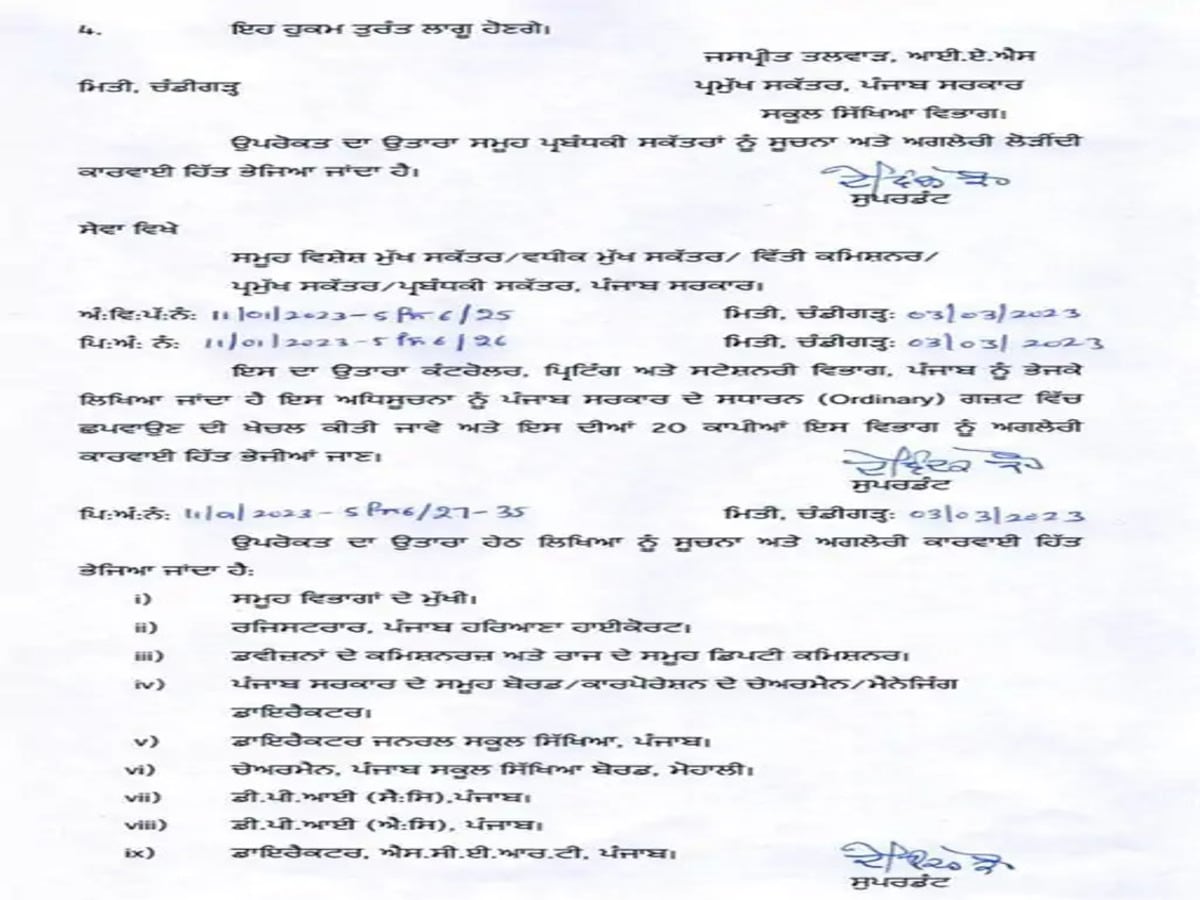 4. ਇਹ ਹੁਕਮ ਤੁਰੰਤ ਲਾਗੂ ਹੋਣਗੇ।
ਜਸਪ੍ਰੀਤ ਤਲਵਾੜ, ਆਈ.ਏ.ਐਸ
ਮਿਤੀ, ਚੰਡੀਗੜ੍ਹ ਪ੍ਰਮੁੱਖ ਸਕੱਤਰ, ਪੰਜਾਬ ਸਰਕਾਰ
ਸਕੂਲ ਸਿੱਖਿਆ ਵਿਭਾਗ।
ਉਪਰੋਕਤ ਦਾ ਉਤਾਰਾ ਸਮੂਹ ਪ੍ਰਬੰਧਕੀ ਸਕੱਤਰਾਂ ਨੂੰ ਸੂਚਨਾ ਅਤੇ ਅਗਲੇਰੀ ਲੋੜੀਂਦੀ
ਕਾਰਵਾਈ ਹਿੱਤ ਭੇਜਿਆ ਜਾਂਦਾ ਹੈ।
ਸੁਪਰਡੰਟ
ਸੇਵਾ ਵਿਖੇ
ਸਮੂਹ ਵਿਸ਼ੇਸ਼ ਮੁੱਖ ਸਕੱਤਰ/ਵਧੀਕ ਮੁੱਖ ਸਕੱਤਰ/ ਵਿੱਤੀ ਕਮਿਸ਼ਨਰ/
ਪ੍ਰਮੁੱਖ ਸਕੱਤਰ/ਪ੍ਰਬੰਧਕੀ ਸਕੱਤਰ, ਪੰਜਾਬ ਸਰਕਾਰ।
ਅੰ:ਵਿ:ਪੱ:ਨੰ: 11/01/2023-5 ਸਿ6/25 ਮਿਤੀ, ਚੰਡੀਗੜ੍ਹ: 03/03/2023
ਪਿ:ਅੰ: ਨੰ: 11/01/2023-5 ਸਿ6/26 ਮਿਤੀ, ਚੰਡੀਗੜ੍ਹ: 03/03/2023
ਇਸ ਦਾ ਉਤਾਰਾ ਕੰਟਰੋਲਰ, ਪ੍ਰਿਟਿੰਗ ਅਤੇ ਸਟੇਸ਼ਨਰੀ ਵਿਭਾਗ, ਪੰਜਾਬ ਨੂੰ ਭੇਜਕੇ
ਲਿਖਿਆ ਜਾਂਦਾ ਹੈ ਇਸ ਅਧਿਸੂਚਨਾ ਨੂੰ ਪੰਜਾਬ ਸਰਕਾਰ ਦੇ ਸਧਾਰਨ (Ordinary) ਗਜ਼ਟ ਵਿੱਚ
ਛਪਵਾਉਣ ਦੀ ਖੇਚਲ ਕੀਤੀ ਜਾਵੇ ਅਤੇ ਇਸ ਦੀਆਂ 20 ਕਾਪੀਆਂ ਇਸ ਵਿਭਾਗ ਨੂੰ ਅਗਲੇਰੀ
ਕਾਰਵਾਈ ਹਿੱਤ ਭੇਜੀਆਂ ਜਾਣ।
ਸੁਪਰਡੰਟ
ਪਿ:ਅੰ:ਨੰ: 11/01/2023-5 ਸਿ6/27-35 ਮਿਤੀ, ਚੰਡੀਗੜ੍ਹ: 03/03/2023
ਉਪਰੋਕਤ ਦਾ ਉਤਾਰਾ ਹੇਠ ਲਿਖਿਆ ਨੂੰ ਸੂਚਨਾ ਅਤੇ ਅਗਲੇਰੀ ਕਾਰਵਾਈ ਹਿੱਤ
ਭੇਜਿਆ ਜਾਂਦਾ ਹੈ:
i) ਸਮੂਹ ਵਿਭਾਗਾਂ ਦੇ ਮੁੱਖੀ।
ii) ਰਜਿਸਟਰਾਰ, ਪੰਜਾਬ ਹਰਿਆਣਾ ਹਾਈਕੋਰਟ।
iii) ਡਵੀਜ਼ਨਾਂ ਦੇ ਕਮਿਸ਼ਨਰਜ਼ ਅਤੇ ਰਾਜ ਦੇ ਸਮੂਹ ਡਿਪਟੀ ਕਮਿਸ਼ਨਰ।
iv) ਪੰਜਾਬ ਸਰਕਾਰ ਦੇ ਸਮੂਹ ਬੋਰਡ/ਕਾਰਪੋਰੇਸ਼ਨ ਦੇ ਚੇਅਰਮੈਨ/ਮੈਨੇਜਿੰਗ
ਡਾਇਰੈਕਟਰ।
v) ਡਾਇਰੈਕਟਰ ਜਨਰਲ ਸਕੂਲ ਸਿੱਖਿਆ, ਪੰਜਾਬ।
vi) ਚੇਅਰਮੈਨ, ਪੰਜਾਬ ਸਕੂਲ ਸਿੱਖਿਆ ਬੋਰਡ, ਮੋਹਾਲੀ।
vii) ਡੀ.ਪੀ.ਆਈ (ਸੈ:ਸਿ),ਪੰਜਾਬ।
viii) ਡੀ.ਪੀ.ਆਈ (ਐ:ਸਿ), ਪੰਜਾਬ।
ix) ਡਾਇਰੈਕਟਰ, ਐਸ.ਸੀ.ਈ.ਆਰ.ਟੀ, ਪੰਜਾਬ।
ਸੁਪਰਡੰਟ